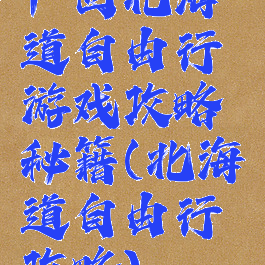 中国北海
道自由行
游戏攻略
秘籍(北海
道自由行
攻略)